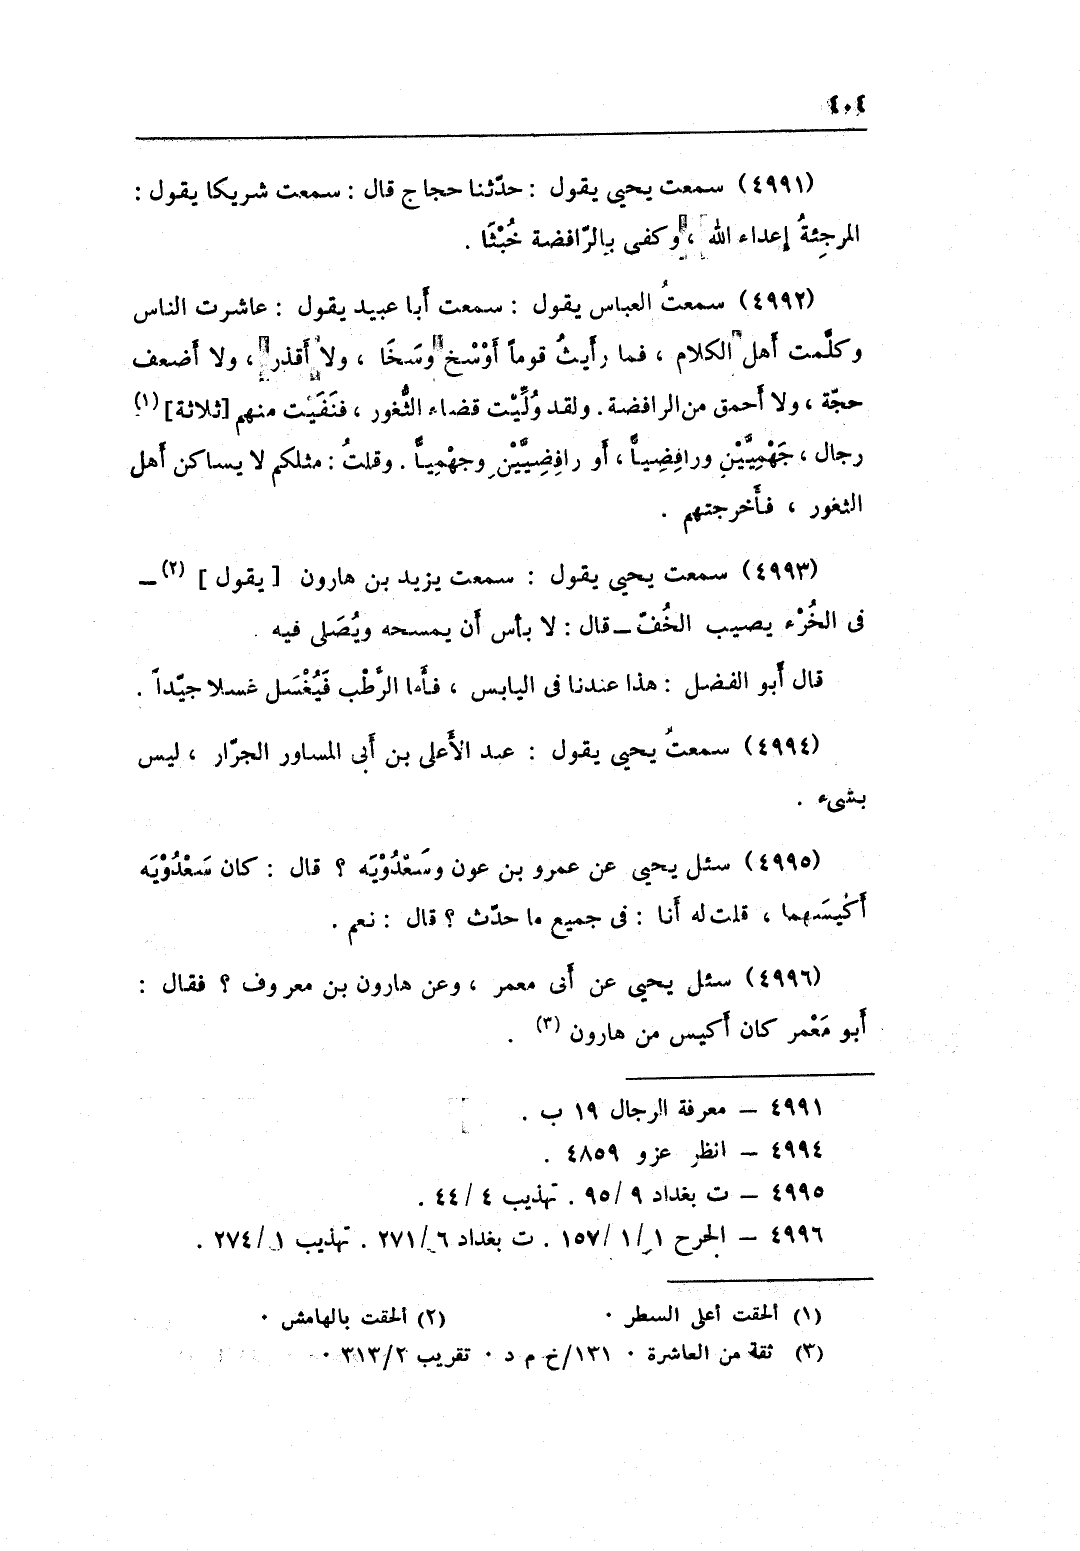 ٤٠٤
(٤٩٩١) سمعت يحيى يقول : حدّثنا حجاج قال : سمعت شريكا يقول :
المرجِئةُ إعداء الله ، وكفى بالرّافضة خُبْثًا .
(٤٩٩٢) سمعتُ العباس يقول : سمعت أَبا عبيد يقول : عاشرت الناس
وكلَّمت أَهل الكلام ، فما رأَيتُ قوماً أَوْسْخ وسَخًا ، ولا أَقذر ، ولا أَضعف
حجّة ، ولا أَحمق من الرافضة . ولقد وُلِّيْت قضاء الثُّغور ، فنَفَيْت منهم [ثلاثة] (١)
رجال ، جَهْمِيَّيْنِ ورافِضِياًّ ، أَو رافِضِيَّيْنِ وجهْمِياًّ . وقلتُ : مثلكم لا يساكن أَهل
الثغور ، فأَخرجتهم .
(٤٩٩٣) سمعت يحيى يقول : سمعت يزيد بن هارون [ يقول ] (٢) ــ
فى الخُرْء يصيب الخُفّ ــ قال : لا بأس أَن يمسحه ويُصَلى فيه .
قال أَبو الفضل : هذا عندنا فى اليابس ، فأَما الرَّطْب فَيُغْسَل غسلا جيّداً .
(٤٩٩٤) سمعتُ يحيى يقول : عبد الأَعلى بن أَبى المساور الجرّار ، ليس
بشىء .
(٤٩٩٥) سئل يحيى عن عمرو بن عون وسَعْدُوْيَه ؟ قال : كان سَعْدُوْيَه
أَكْيسَهما ، قلت له أَنا : فى جميع ما حدّث ؟ قال : نعم .
(٤٩٩٦) سئل يحيى عن أَبى معمر ، وعن هارون بن معروف ؟ فقال :
أَبو مَعْمر كان أَكيس من هارون (٣) .
٤٩٩١ – معرفة الرجال ١٩ ب .
٤٩٩٤ – انظر عزو ٤٨٥٩ .
٤٩٩٥ – ت بغداد ٩ /٩٥ . تهذيب ٤ /٤٤ .
٤٩٩٦ – الجرح ١ /١ /١٥٧ . ت بغداد ٦ /٢٧١ . تهذيب ١ /٢٧٤ .
(١) ألحقت أعلى السطر . (٢) ألحقت بالهامش .
(٣) ثقة من العاشرة . ١٣١/خ م د . تقريب ٣١٣/٢ .